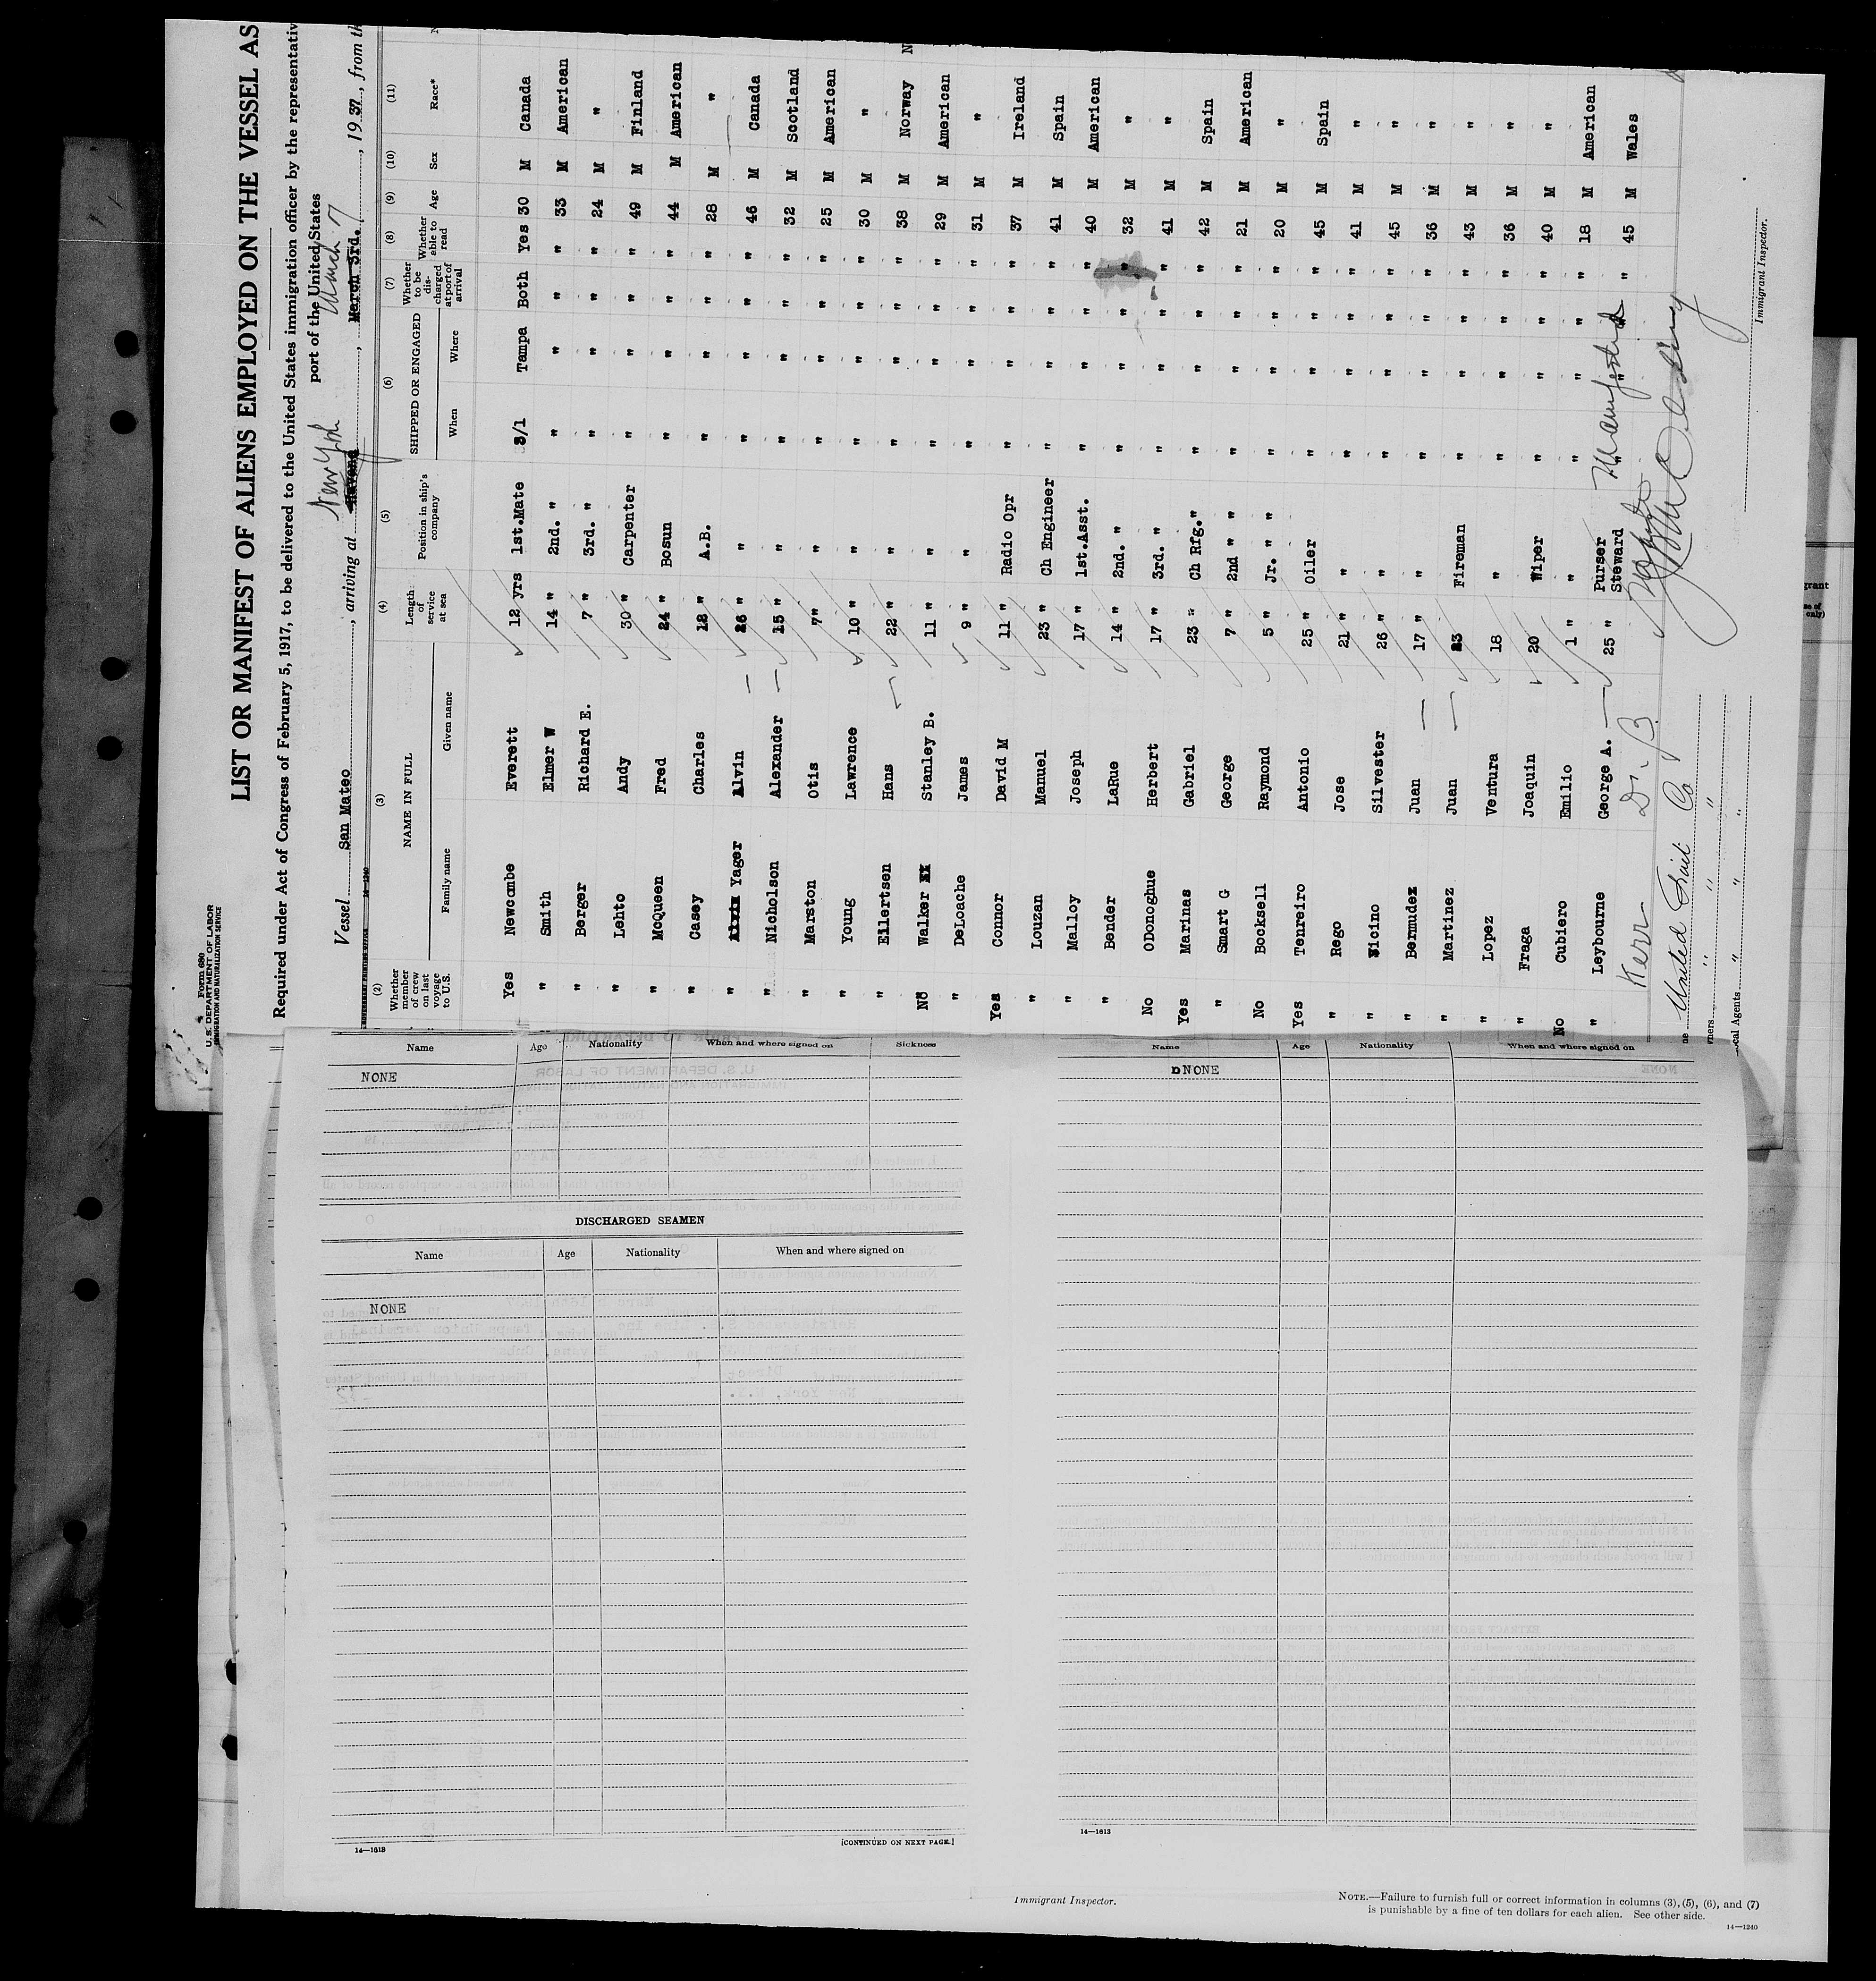 Form 680
U. S. DEPARTMENT OF LABOR
IMMIGRATION AND NATURALIZATION SERVICE
LIST OR MANIFEST OF ALIENS EMPLOYED ON THE VESSEL AS
Required under Act of Congress of February 5, 1917, to be delivered to the United States immigration officer by the representativ
port of the United States
New York March 7
Vessel San Mateo, arriving at Havana, March 3rd., 1937, from th
(2) (3) (4) (5) (6) (7) (8) (9) (10) (11)
Whether member of crew on last voyage to U.S. NAME IN FULL Length of service at sea Position in ship's company SHIPPED OR ENGAGED Whether to be discharged at port of arrival Whether able to read Age Sex Race*
Family name Given name When Where
Yes Newcombe Everett 12 yrs 1st.Mate 3/1 Tampa Both Yes 30 M Canada
" Smith Elmer W 14 " 2nd. " " " " " 33 M American
" Berger Richard E. 7 " 3rd. " " " " " 24 M "
" Lehto Andy 30 " Carpenter " " " " 49 M Finland
" McQueen Fred 24 " Bosun " " " " 44 M American
" Casey Charles 12 " A.B. " " " " 28 M "
" Yager Alvin 26 " " " " " " 46 M Canada
" Nicholson Alexander 15 " " " " " " 32 M Scotland
" Marston Otis 7" " " " " " 25 M American
" Young Lawrence 10 " " " " " " 30 M "
" Eilertsen Hans 22 " " " " " " 38 M Norway
No Walker Stanley B. 11 " " " " " " 29 M American
" DeLoache James 9 " " " " " " 31 M "
Yes Connor David M 11 " Radio Opr " " " " 37 M Ireland
" Louzan Manuel 23 " Ch Engineer " " " " 41 M Spain
" Malloy Joseph 17 " 1st.Asst. " " " " 40 M American
" Bender LaRue 14 " 2nd. " " " " " 32 M "
No ODonoghue Herbert 17 " 3rd. " " " " " 41 M "
Yes Marinas Gabriel 23 " Ch Rfg." " " " " 42 M Spain
" Smart G George 7 " 2nd " " " " " " 21 M American
No Bocksell Raymond 5 " Jr. " " " " " " 20 M "
Yes Tenreiro Antonio 25 " Oiler " " " " 45 M Spain
" Rego Jose 21 " " " " " " 41 M "
" Sicino Silvester 26 " " " " " " 45 M "
" Bermudez Juan 17 " " " " " " 36 M "
" Martinez Juan 23 Fireman " " " " 43 M "
" Lopez Ventura 18 " " " " " 36 M "
" Fraga Joaquin 20 Wiper " " " " 40 M "
No Cubiero Emilio 1 " " " " " " 18 M American
" Leybourne George A. 25 " Purser Steward " " " " 45 M Wales
Kerr Dn B.
United Fruit Co
wners " " "
ocal Agents " " "
Immigrant Inspector.
Name Age Nationality When and where signed on Sickness
NONE
DISCHARGED SEAMEN
Name Age Nationality When and where signed on
NONE
14—1613 [CONTINUED ON NEXT PAGE.]
Name Age Nationality When and where signed on
NONE
14—1613
Immigrant Inspector.
NOTE.—Failure to furnish full or correct information in columns (3), (5), (6), and (7)
is punishable by a fine of ten dollars for each alien. See other side.
14—1240